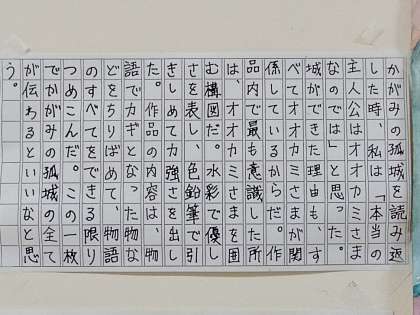 かがみの孤城を読み返
した時、私は「本当の
主人公はオオカミさま
なのでは」と思った。
城ができた理由も、す
べてオオカミさまが関
係しているからだ。作
品内で最も意識した所
は、オオカミさまを囲
む構図だ。水彩で優し
さを表し、色鉛筆で引
きしめて力強さを出し
た。作品の内容は、物
語でカギとなった物な
どをちりばめて、物語
のすべてをできる限り
つめこんだ。この一枚
でかがみの孤城の全て
が伝わるといいなと思
う。